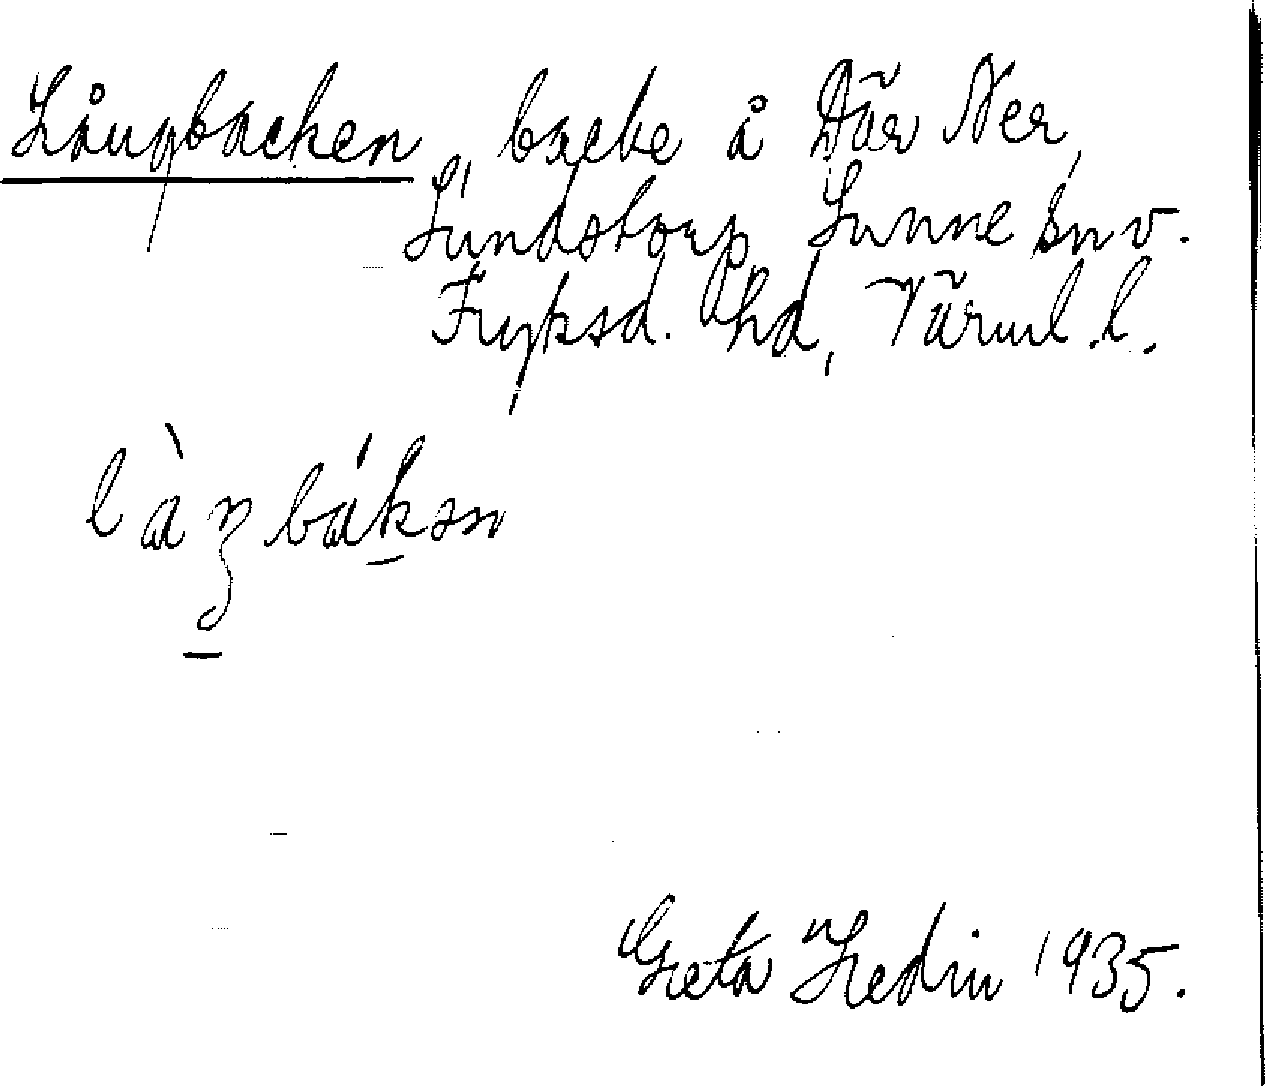 Långbacken, backe å Där Ner,
Lundstorp, Sunne sn v.
Fryksd. hd, Värml. l.
làŋbákən
Greta Hedin 1935.